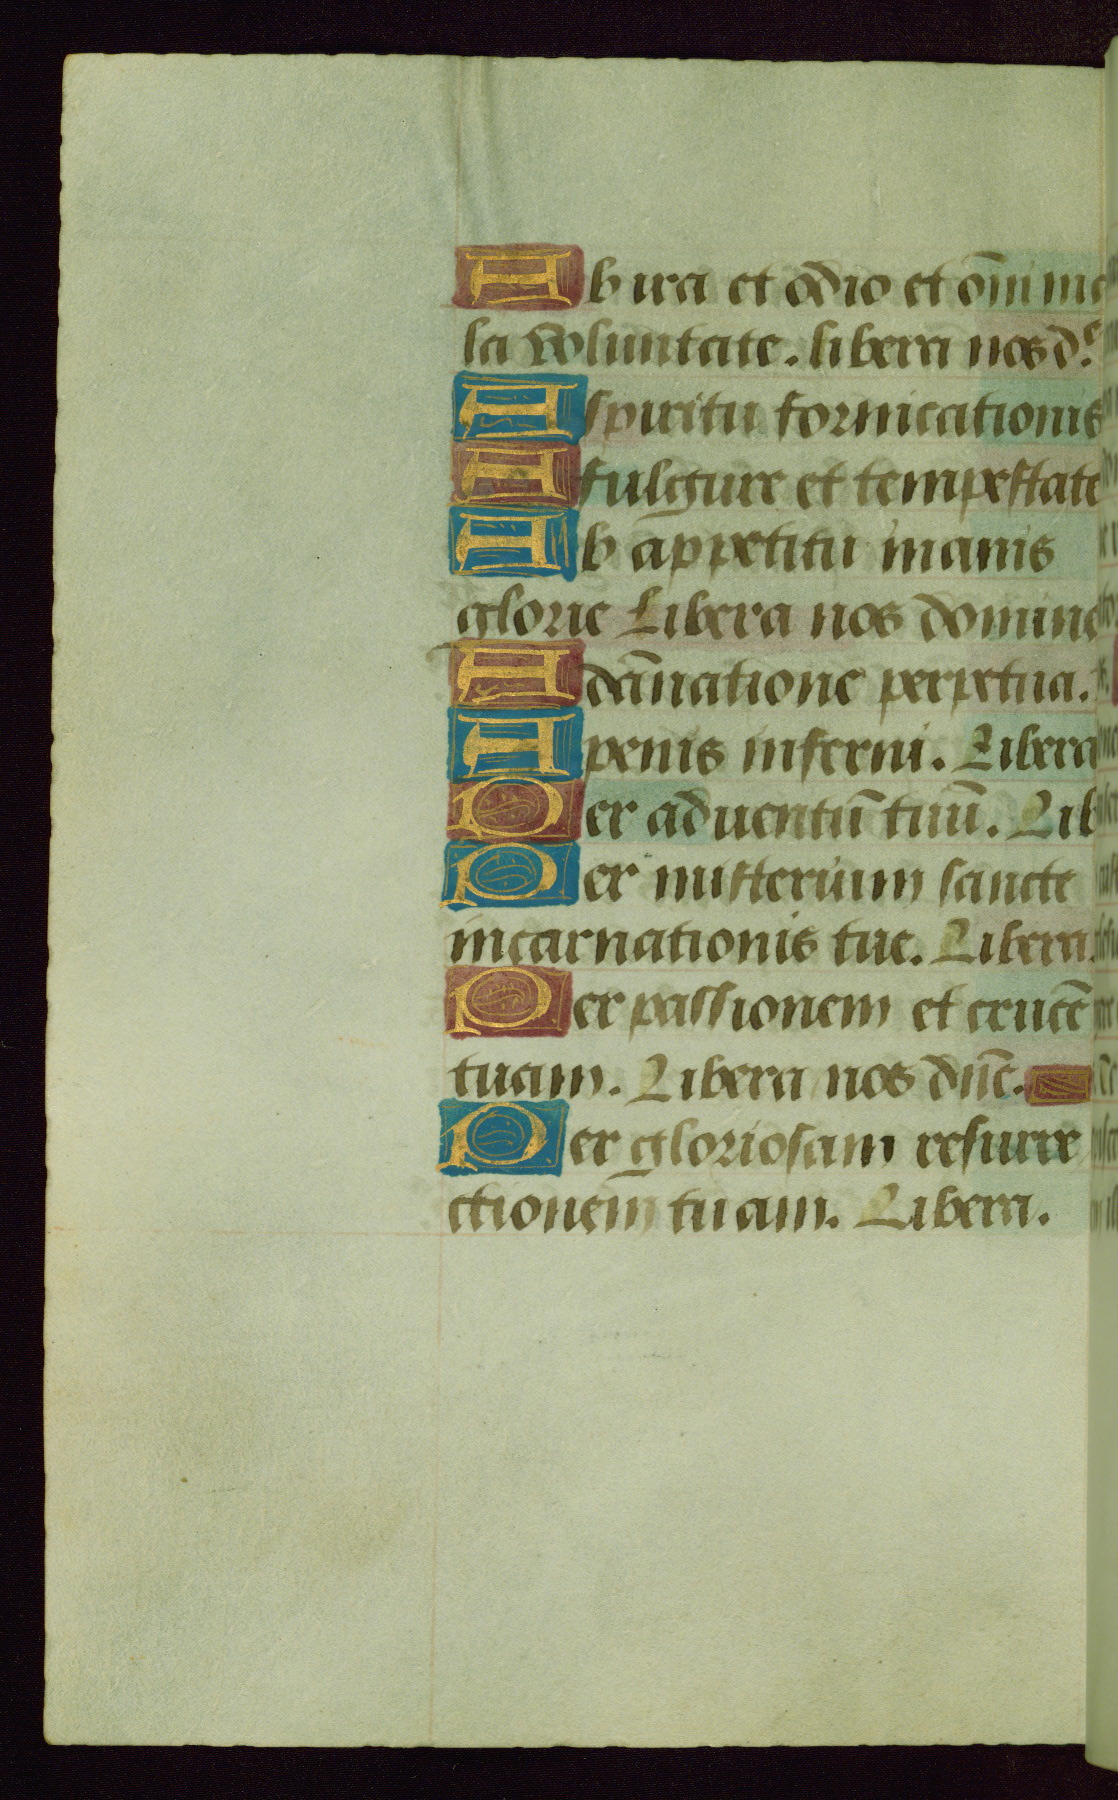 Ab ira et odio et om̄i ma
la voluntate. libera nos d.e
A spiritu fornicationis
A fulgure et tempestate
Ab appetitu inanis
glorie Libera nos domine
A dānatione perpetua.
A penis inferni. Libera
Per aduentū tuū. Lib
Per misterium sancte
incarnationis tue. Libera.
Per passionem et crucē
tuam. Libera nos dn̄e.
Per gloriosam resurre
ctionem tuam. Libera.